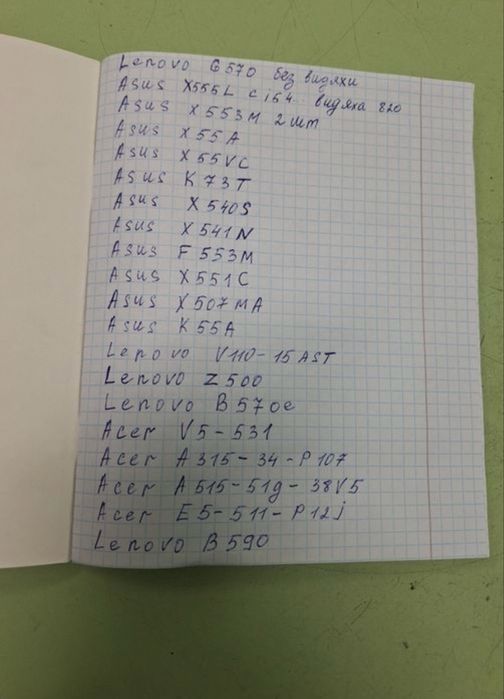 Lenovo G570 без видяхи
Asus X555L с i54 видяха 820
Asus X553M 2 шт
Asus X55A
Asus X55VC
Asus K73T
Asus X540S
Asus X541N
Asus F553M
Asus X551C
Asus X507MA
Asus K55A
Lenovo V110-15AST
Lenovo Z500
Lenovo B570e
Acer V5-531
Acer A315-34-P107
Acer A515-51g-38V5
Acer E5-511-P12j
Lenovo B590